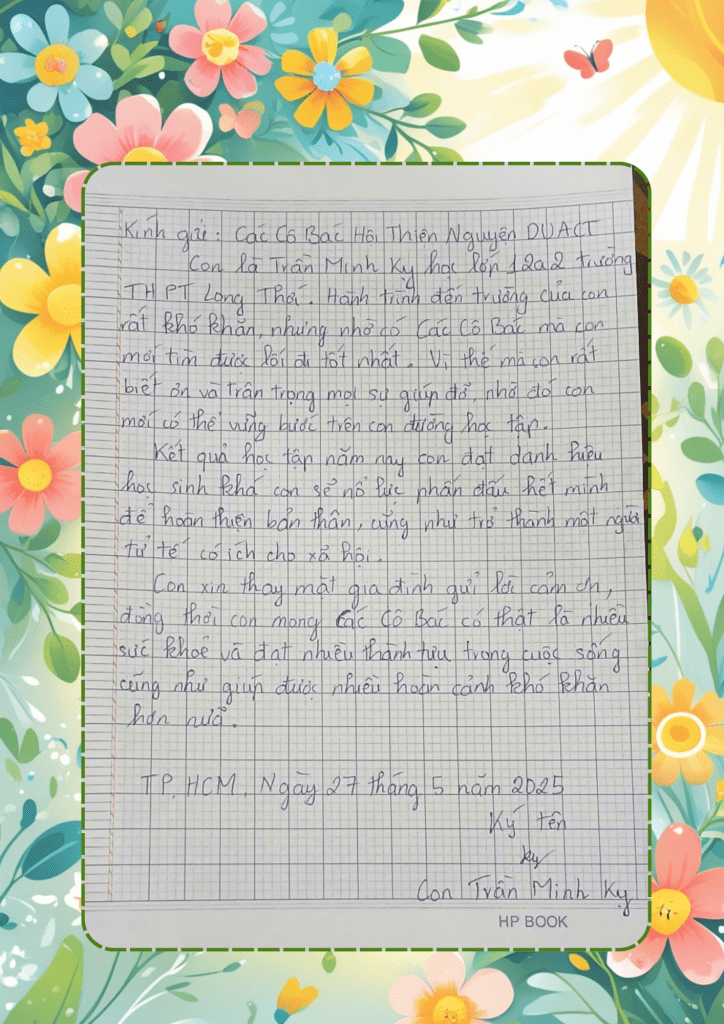 Kính gửi: Các Cô Bác Hội Thiện Nguyện DUACT
Con là Trần Minh Kỵ học lớp 12a2 trường
THPT Long Thới. Hành trình đến trường của con
rất khó khăn, nhưng nhờ có Các Cô Bác mà con
mới tìm được lối đi tốt nhất. Vì thế mà con rất
biết ơn và trân trọng mọi sự giúp đỡ, nhờ đó con
mới có thể vững bước trên con đường học tập.
Kết quả học tập năm nay con đạt danh hiệu
học sinh khá con sẽ nổ lực phấn đấu hết mình
để hoàn thiện bản thân, cũng như trở thành một người
tử tế có ích cho xã hội.
Con xin thay mặt gia đình gửi lời cảm ơn,
đồng thời con mong Các Cô Bác có thật là nhiều
sức khoẻ và đạt nhiều thành tựu trong cuộc sống
cũng như giúp được nhiều hoàn cảnh khó khăn
hơn nữa.
TP. HCM, Ngày 27 tháng 5 năm 2025
Ký tên
Kỵ
Con Trần Minh Kỵ
HP BOOK